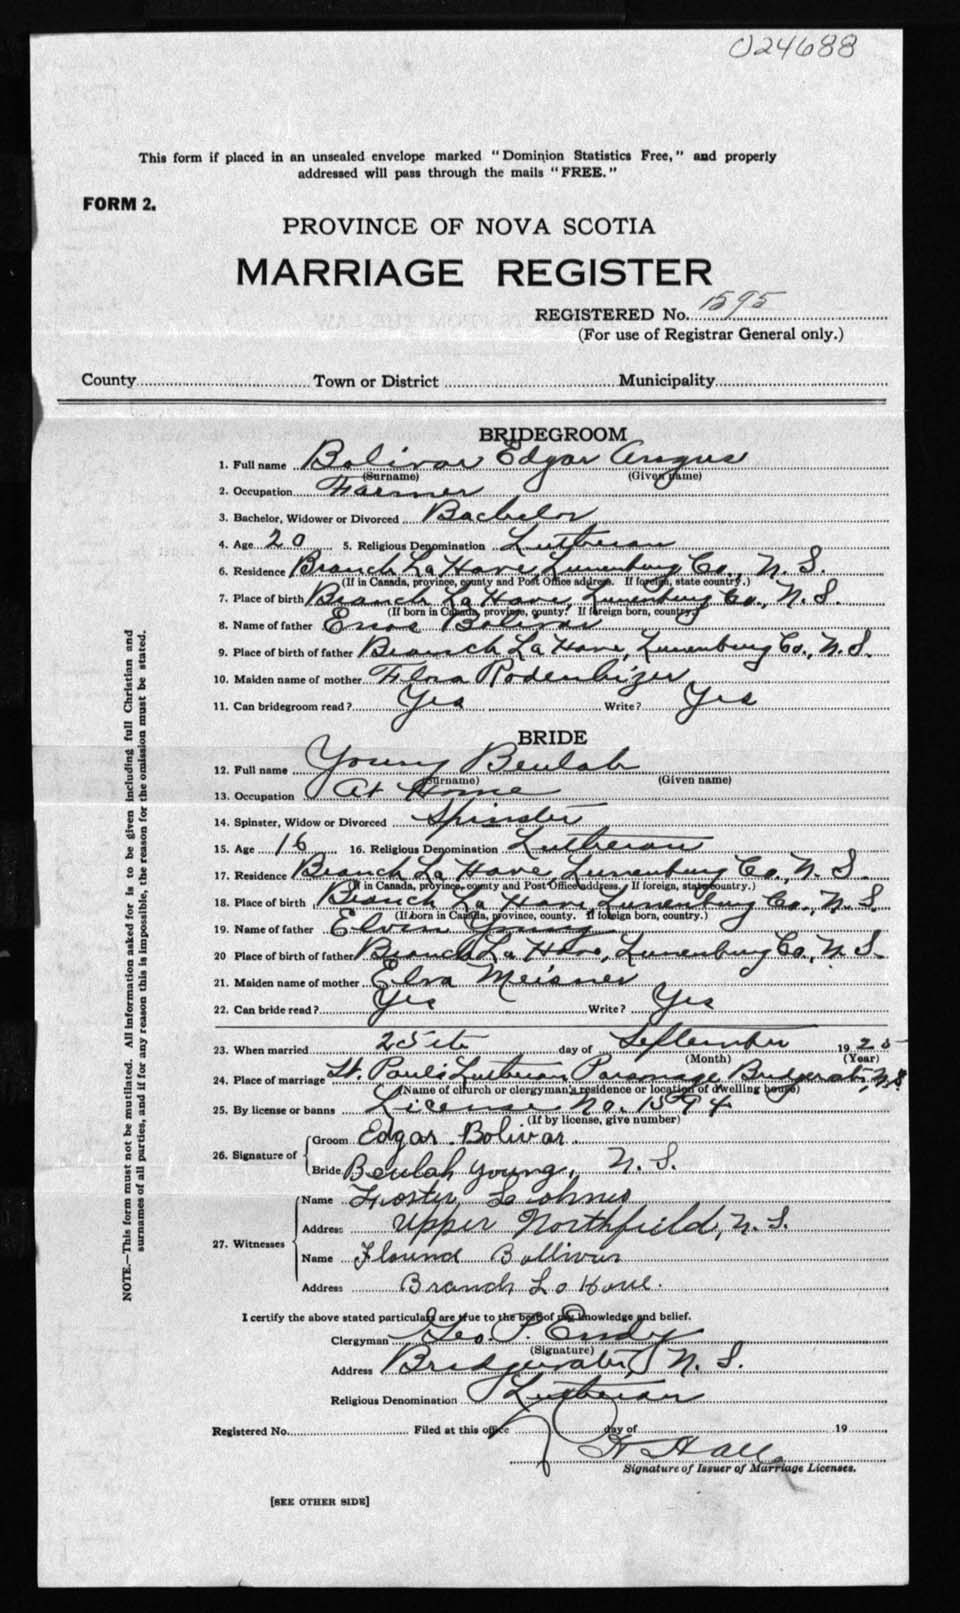 024688
This form if placed in an unsealed envelope marked "Dominion Statistics Free," and properly
addressed will pass through the mails "FREE."
FORM 2.
PROVINCE OF NOVA SCOTIA
MARRIAGE REGISTER
REGISTERED No. 1595
(For use of Registrar General only.)
County Town or District Municipality
BRIDEGROOM
1. Full name Bolivar Edgar Angus
(Surname) (Given name)
2. Occupation Farmer
3. Bachelor, Widower or Divorced Bachelor
4. Age 20 5. Religious Denomination Lutheran
6. Residence Branch La Have, Lunenburg Co., N. S.
(If in Canada, province, county and Post Office address. If foreign, state country.)
7. Place of birth Branch La Have, Lunenburg Co., N. S.
(If born in Canada, province, county. If foreign born, country)
8. Name of father Enos Bolivar
9. Place of birth of father Branch La Have, Lunenburg Co., N. S.
10. Maiden name of mother Flora Rodenhizer
11. Can bridegroom read? Yes Write? Yes
BRIDE
12. Full name Young Beulah
(Surname) (Given name)
13. Occupation At Home
14. Spinster, Widow or Divorced Spinster
15. Age 16 16. Religious Denomination Lutheran
17. Residence Branch La Have, Lunenburg Co., N. S.
(If in Canada, province, county and Post Office address. If foreign, state country.)
18. Place of birth Branch La Have, Lunenburg Co., N. S.
(If born in Canada, province, county. If foreign born, country.)
19. Name of father Elvin Young
20 Place of birth of father Branch La Have, Lunenburg Co., N. S.
21. Maiden name of mother Elva Meisner
22. Can bride read? Yes Write? Yes
23. When married 25th day of September 1925
(Month) (Year)
24. Place of marriage St. Paul's Lutheran Parsonage Bridgewater, N. S.
(Name of church or clergyman's residence or location of dwelling house)
25. By license or banns License No. 1594
(If by license, give number)
26. Signature of
Groom Edgar Bolivar
Bride Beulah Young, N. S.
27. Witnesses
Name Foster
Address Upper Northfield, N. S.
Name Bollivar
Address Branch La Have.
I certify the above stated particulars are true to the best of my knowledge and belief.
Clergyman Geo. P. Endy
(Signature)
Address Bridgewater, N. S.
Religious Denomination Lutheran
Registered No. Filed at this office day of 19
Hall
Signature of Issuer of Marriage Licenses.
[SEE OTHER SIDE]
NOTE.—This form must not be mutilated. All information asked for is to be given including full Christian and
surnames of all parties, and if for any reason this is impossible, the reason for the omission must be stated.